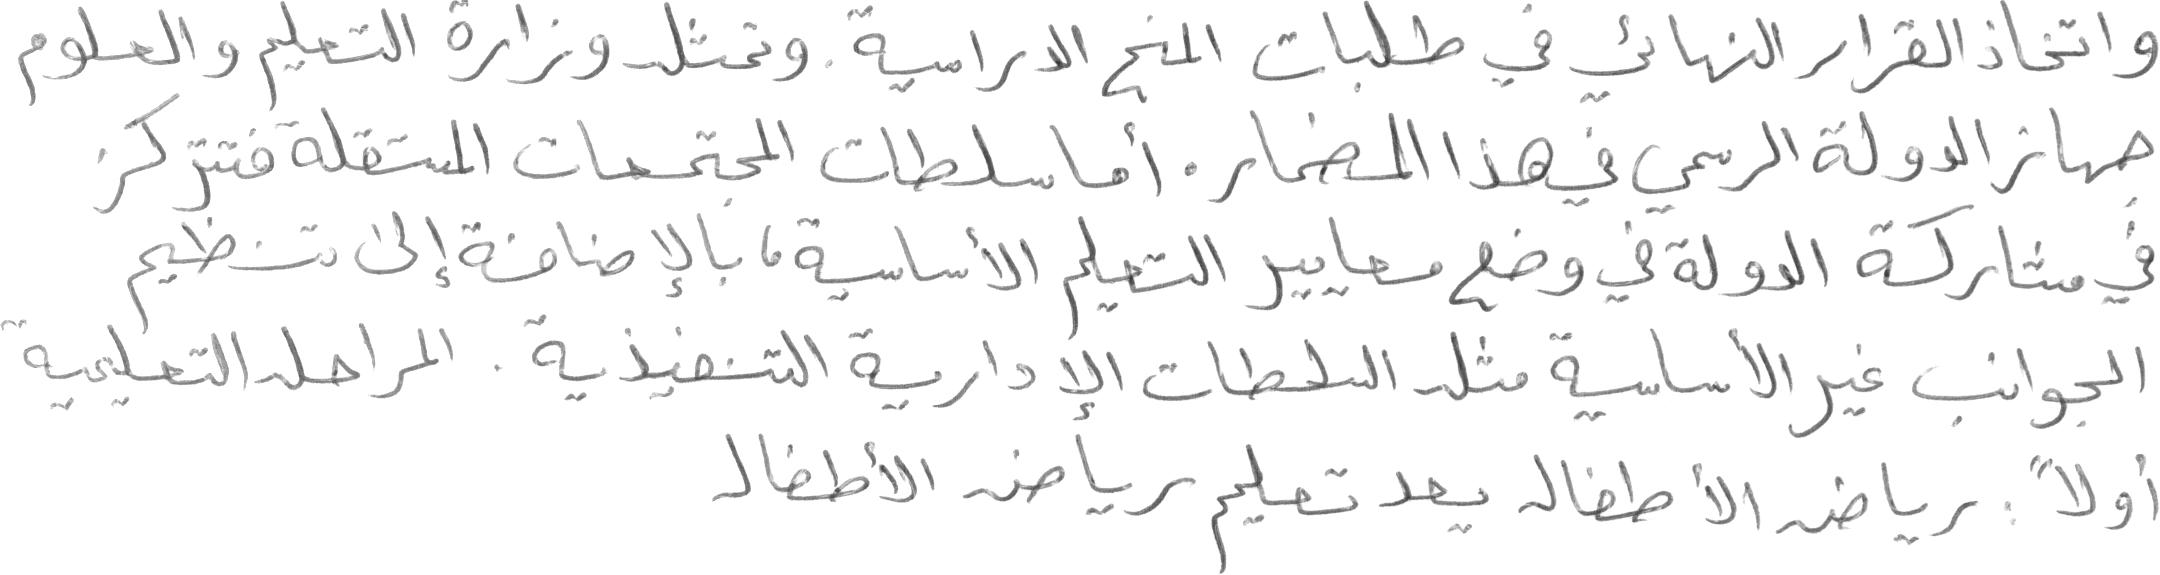 واتخاذ القرار النهائي في طلبات المنح الدراسية. وتمثل وزارة التعليم والعلوم
جهاز الدولة الرسمي في هذا المضمار. أما سلطات المجتمعات المستقلة فتتركز
في مشاركة الدولة في وضع معايير التعليم الأساسية، بالإضافة إلى تنظيم
الجوانب غير الأساسية مثل السلطات الإدارية التنفيذية. المراحل التعليمية
أولاً: رياض الأطفال يعد تعليم رياض الأطفال